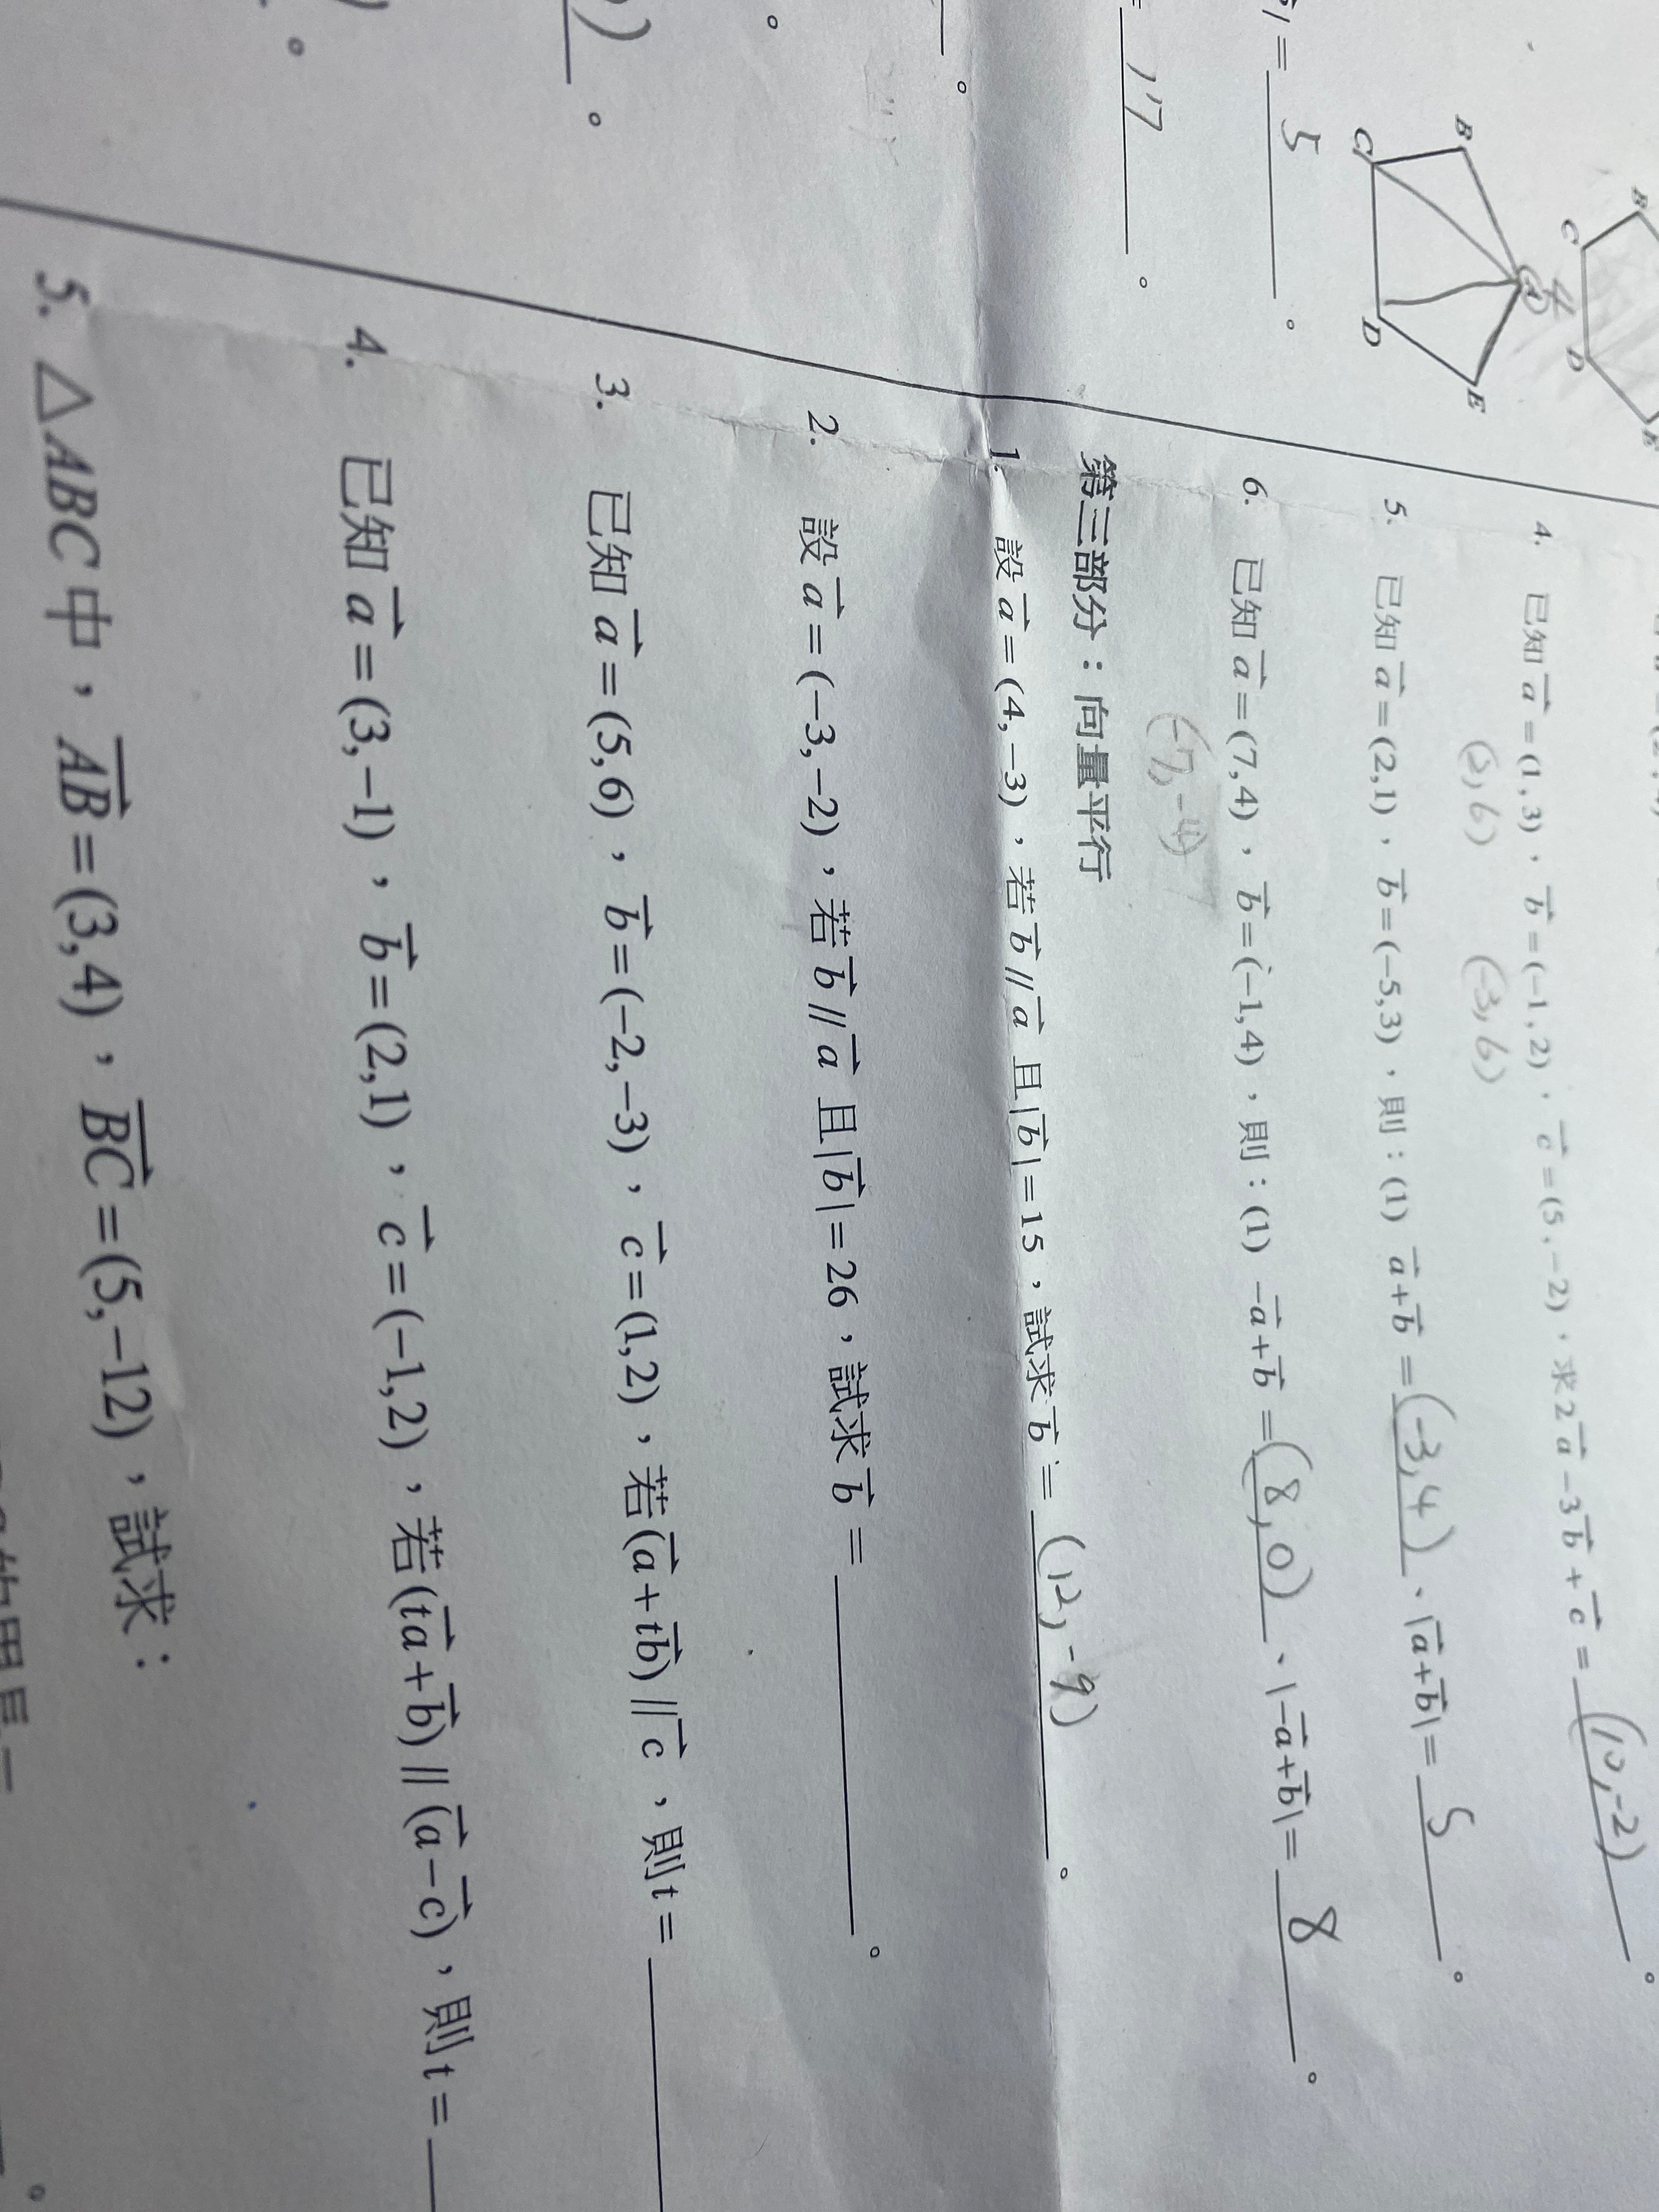 B
C
D
E
4. 已知 a = (1,3), b = (-1,2), c = (5,-2), 求 2a - 3b + c = (10,-2)。
(-3,6)
5. 已知 a = (2,1), b = (-5,3), 則:(1) a+b = (-3,4)、|a+b| = 5。
6. 已知 a = (7,4), b = (-1,4), 則:(1) -a+b = (8,0)、|-a+b| = 8。
(-7,-4)
第三部分:向量平行
1. 設 a = (4,-3), 若 b // a 且 |b| = 15, 試求 b = (12,-9)。
2. 設 a = (-3,-2), 若 b // a 且 |b| = 26, 試求 b = 。
3. 已知 a = (5,6), b = (-2,-3), c = (1,2), 若 (a+tb) // c, 則 t =
4. 已知 a = (3,-1), b = (2,1), c = (-1,2), 若 (ta+b) // (a-c), 則 t =
5. △ABC 中, AB = (3,4), BC = (5,-12), 試求:
= 5。
= 17。